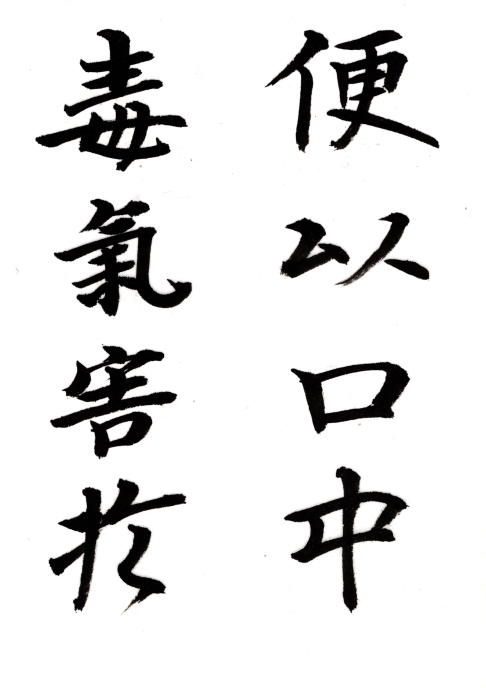 便以口中
毒氣害於